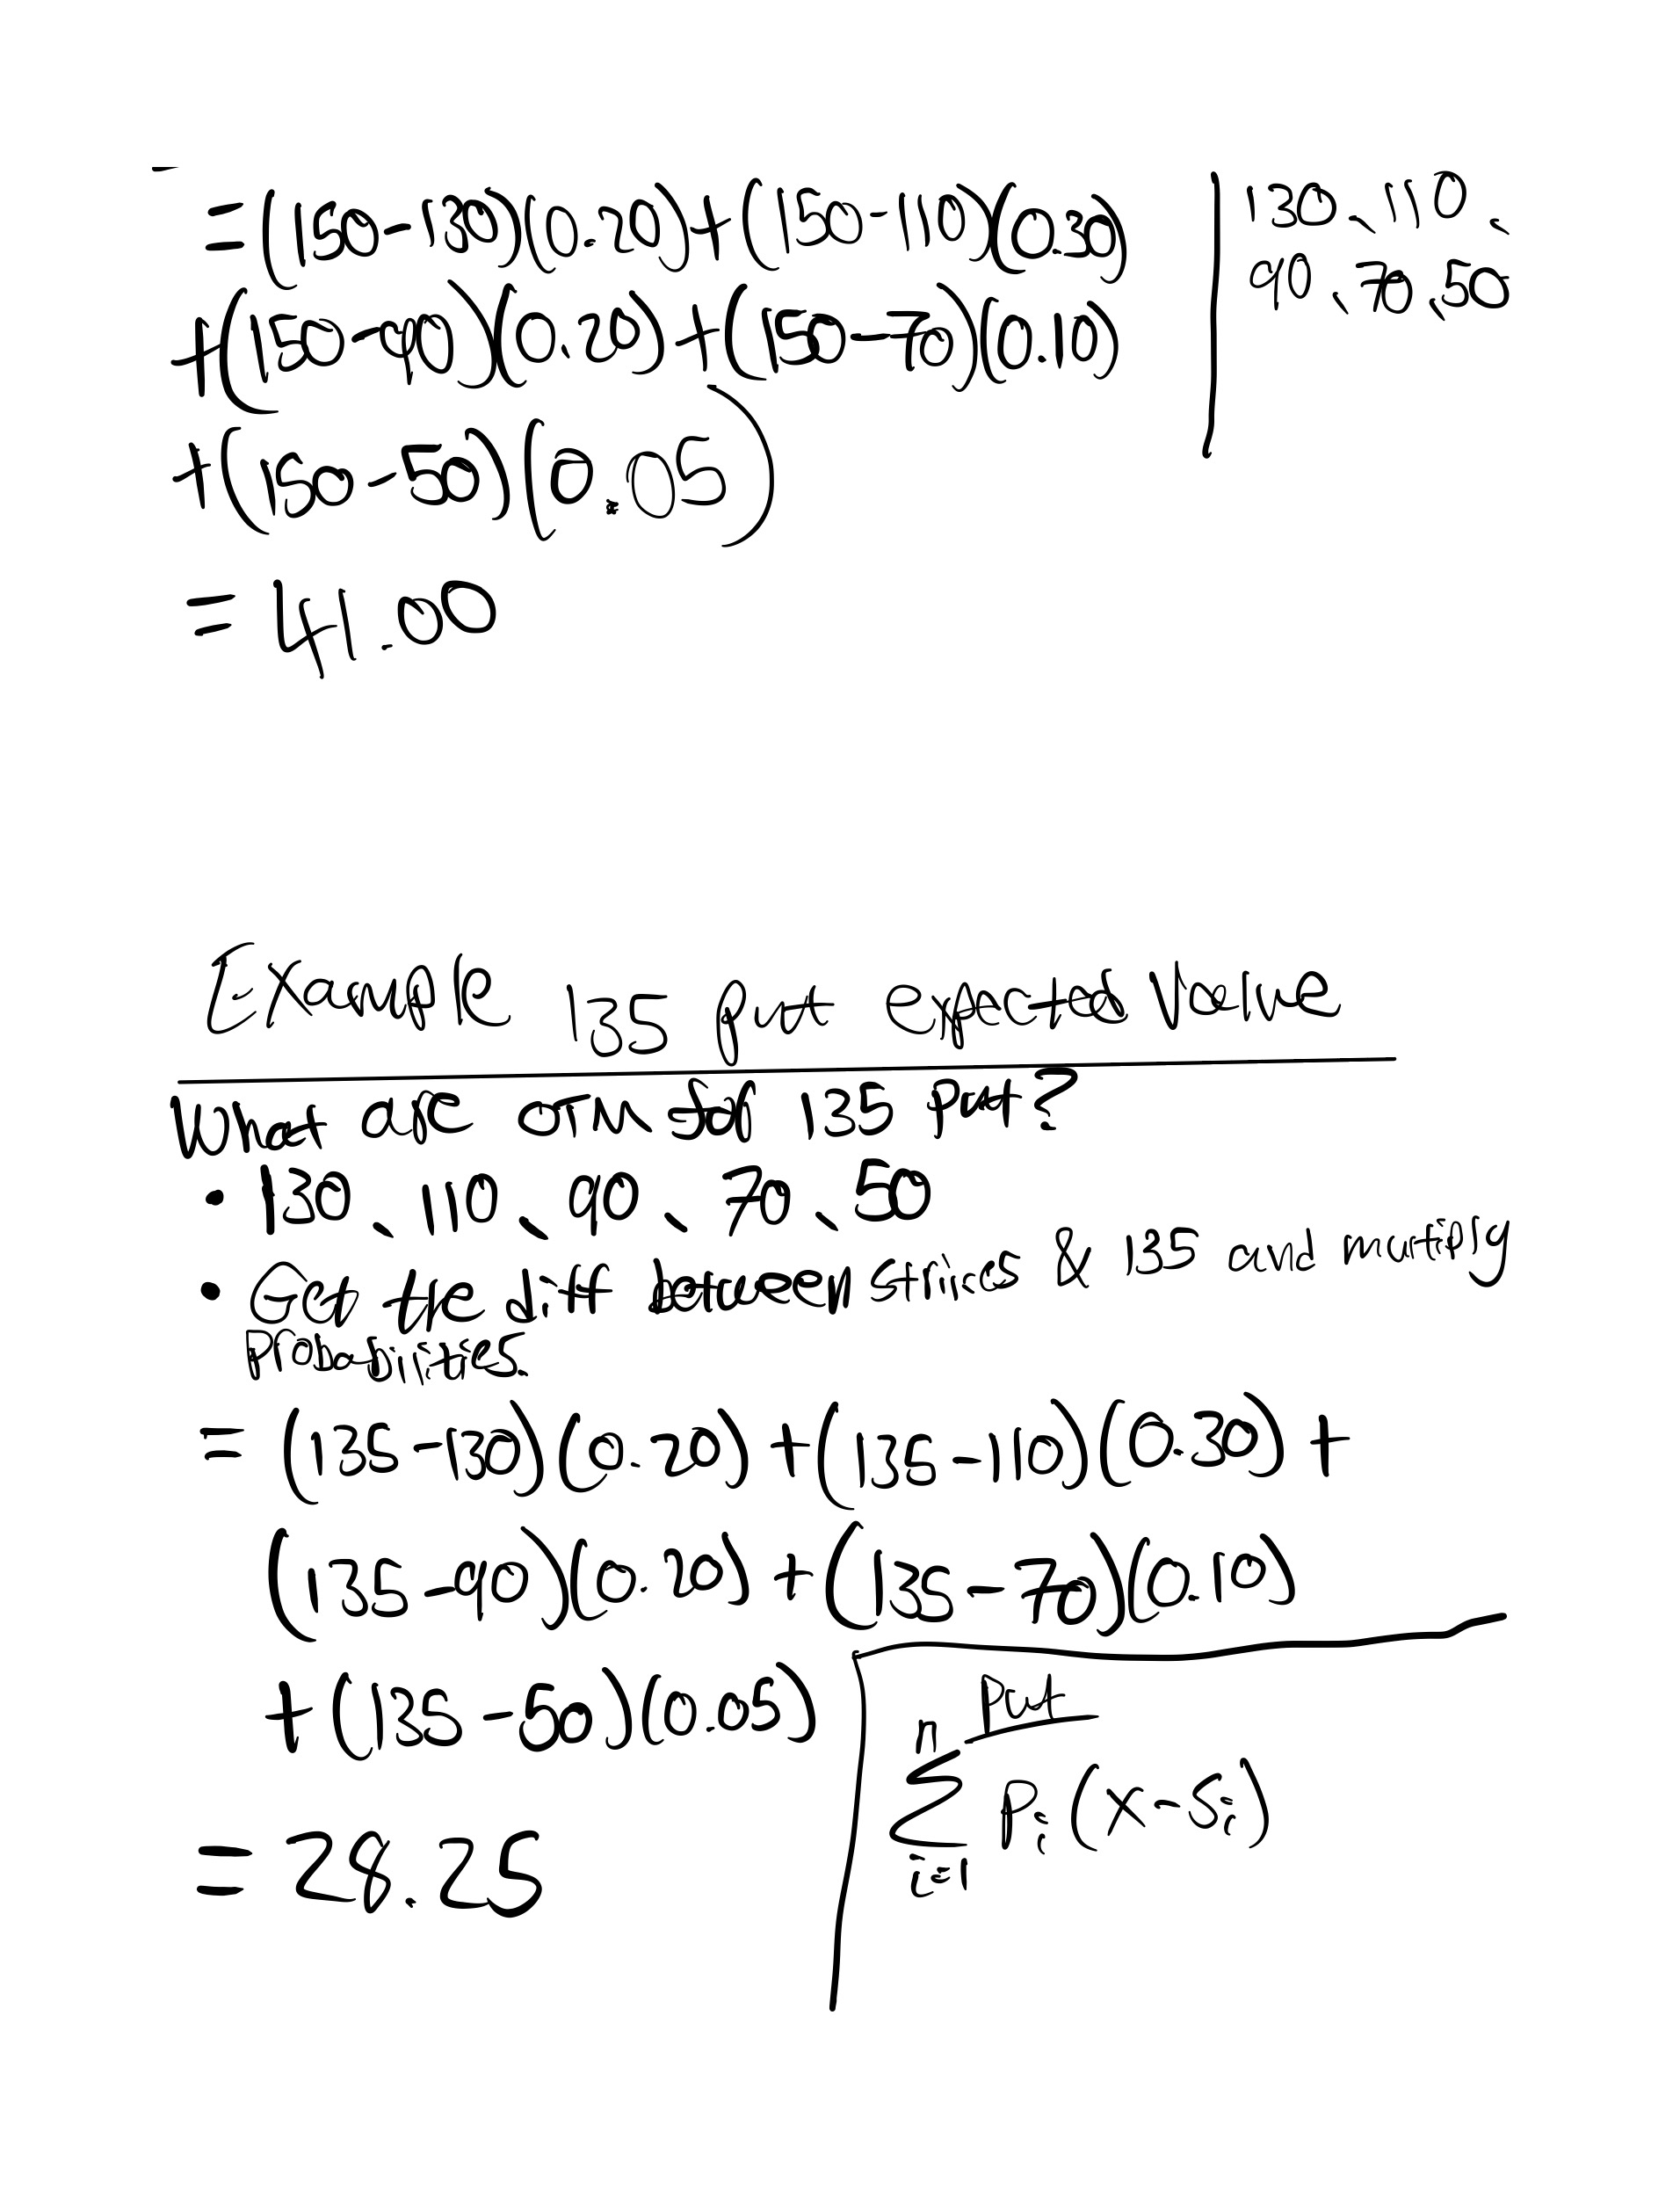 = (150-130)(0.20)+(150-110)(0.30)
+(150-90)(0.20)+(150-70)(0.10)
+(150-50)(0.05)
= 41.00
130、110、
90、70、50
Example 135 put expected value
What are OTM sof 135 Put?
• 130、110、90、70、50
• Get the diff between strikes & 135 and multiply
Probabilities.
= (135-130)(0.20)+(135-110)(0.30)+
(135-90)(0.20)+(135-70)(0.10)
+(135-50)(0.05)
= 28.25
Put
n
Σ pᵢ(X-Sᵢ)
i=1